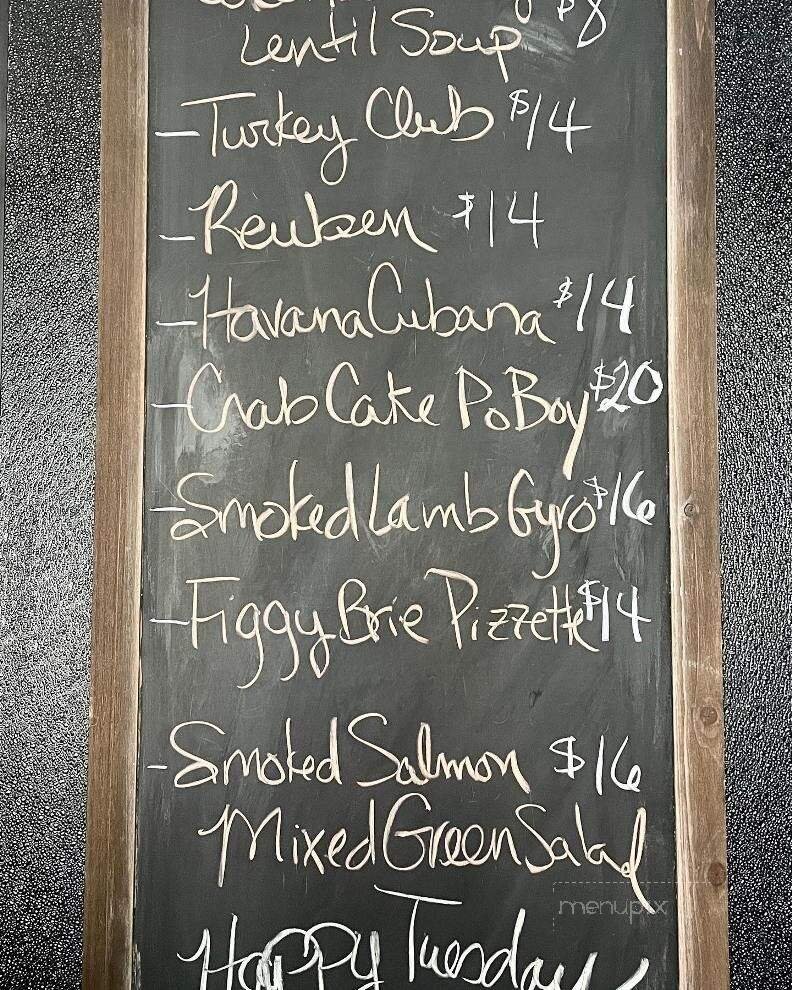 $8
Lentil Soup
- Turkey Club $14
- Reuben $14
- Havana Cubana $14
- Crab Cake PoBoy $20
- Smoked Lamb Gyro $16
- Figgy Brie Pizzette $14
- Smoked Salmon $16
Mixed Green Salad
menupix
Happy Tuesday